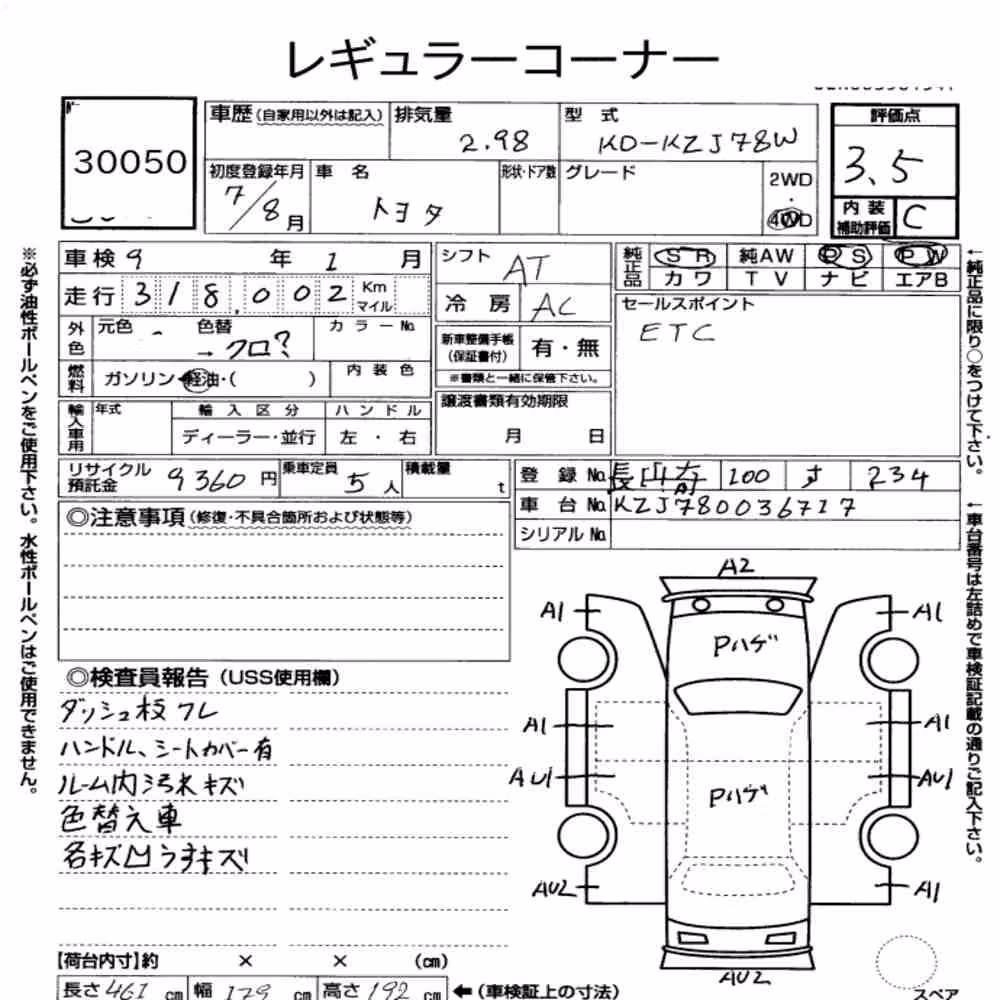 レギュラーコーナー
30050
車歴 (自家用以外は記入)
排気量
2.98
型 式
KD-KZJ78W
評価点
3.5
内 装
補助評価
C
初度登録年月
7/8月
車 名
トヨタ
形状・ドア数
グレード
2WD
・
4WD
車検 9 年 1 月
走行 318,002 Km マイル
外色
元色 -
色替
→クロ?
カラーNo
燃料
ガソリン・軽油・( )
内 装 色
輸入車用
年式
輸 入 区 分
ディーラー・並行
ハ ン ド ル
左 ・ 右
シフト
AT
冷 房
AC
新車整備手帳
(保証書付)
有・無
※書類と一緒に保管下さい。
譲渡書類有効期限
月 日
純正品
SR 純AW PS PW
カワ TV ナビ エアB
セールスポイント
ETC
リサイクル
預託金
9360 円
乗車定員
5 人
積載量
t
登 録 No. 100 す 234
車 台 No. KZJ780036717
シリアル No.
◎注意事項 (修復・不具合箇所および状態等)
◎検査員報告 (USS使用欄)
ダッシュ板ワレ
ハンドル、シートカバー有
ルーム内汚れキズ
色替え車
各キズ凹うすキズ
A2
A1
A1
Pハゲ
A1
A1
AU1
AU1
Pハゲ
AU2
A1
AU2
スペア
【荷台内寸】約 × × (cm)
長さ 461 cm 幅 179 cm 高さ 192 cm ← (車検証上の寸法)
※必ず油性ボールペンをご使用下さい。水性ボールペンはご使用できません。
←純正品に限り○をつけて下さい。
←車台番号は左詰めで車検証記載の通りご記入下さい。